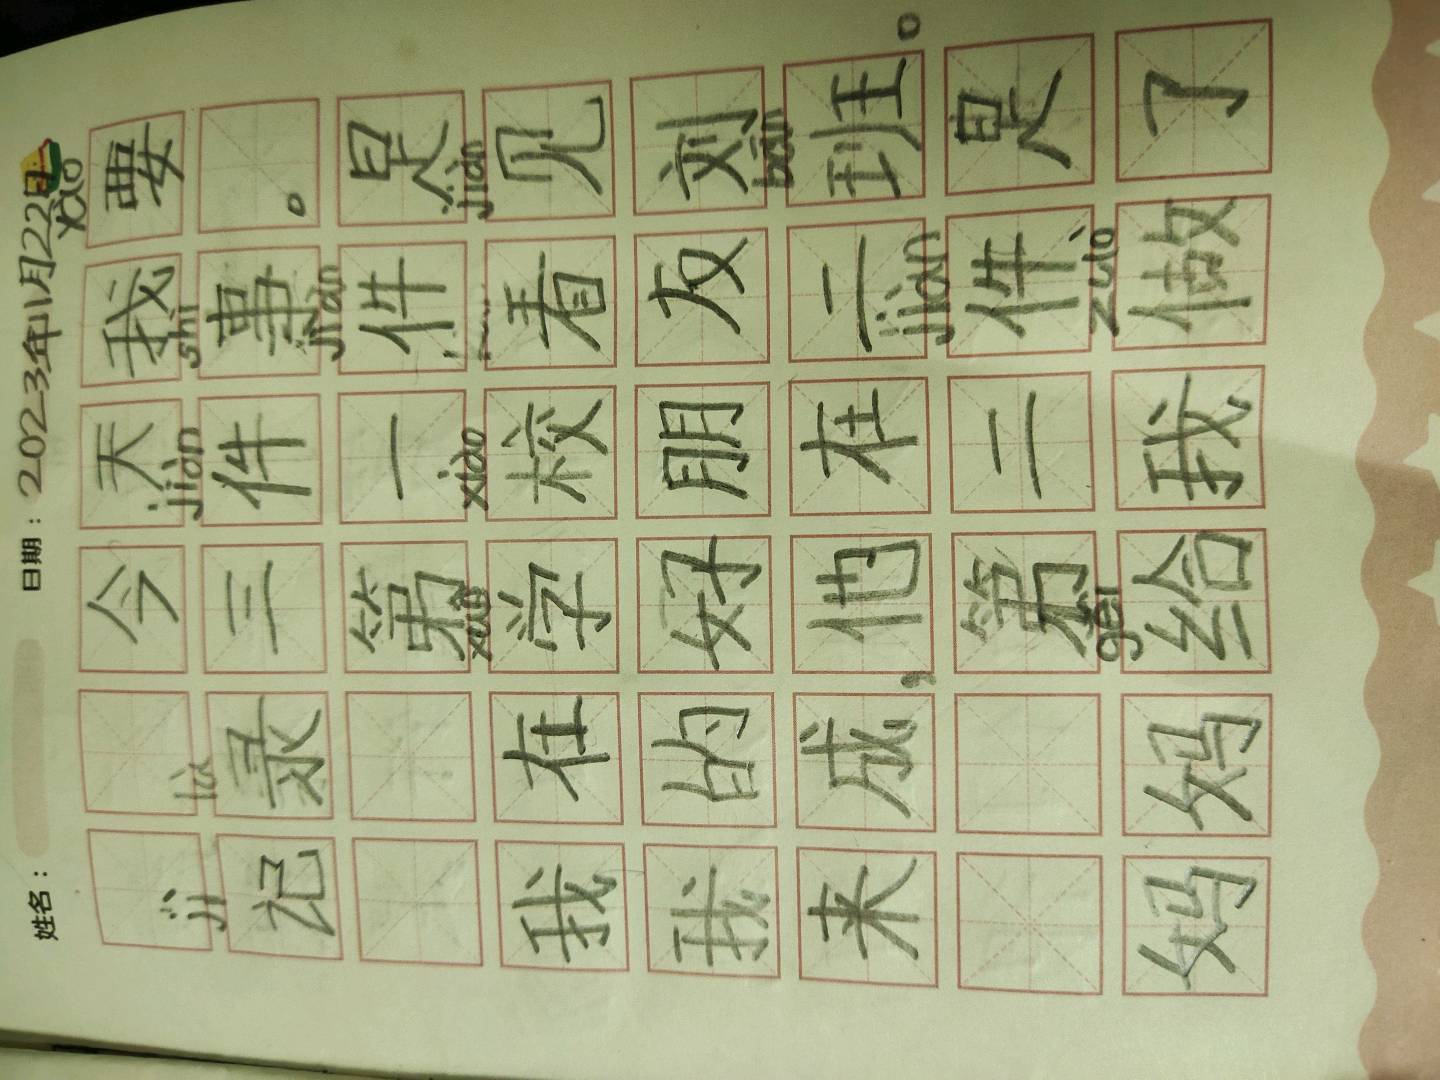 姓名： 日期：2023年11月22日
今天我要
jì lù jiàn shì
记录三件事。
jiàn
第一件是
xué xiào jiàn
我在学校看见
我的好朋友刘
bān
来成，他在二班。
jiàn
第二件是
gěi zuò
妈妈给我做了